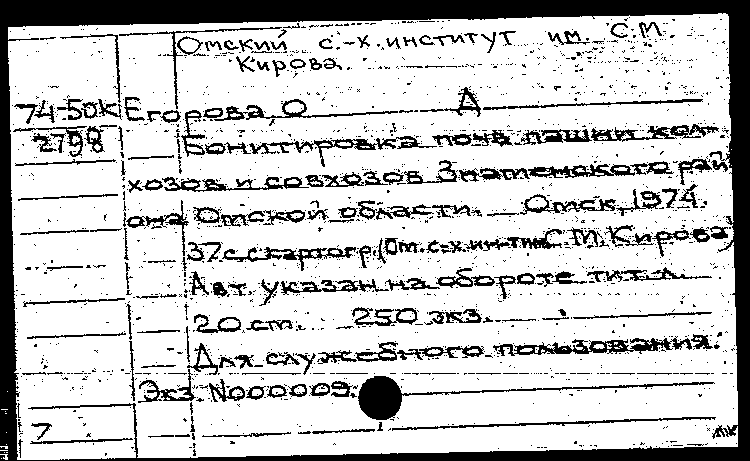 Омский с.-х. институт им. С.М.
Кирова.
74-50К Егорова, О Д
2798 Бонитировка почв пашни кол-
хозов и совхозов Знаменского рай
она Омской области. Омск, 1974.
37с. с картогр. (Ом. с-х. ин-т им. С.М. Кирова)
Авт. указан на обороте тит. л.
20 ст. 250 экз.
Для служебного пользования.
Экз. №000009.
7